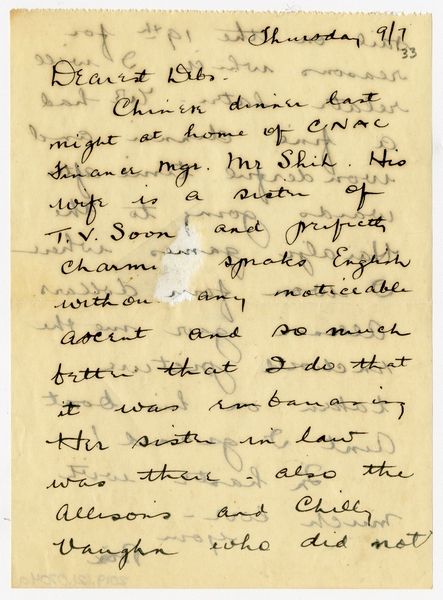 Thursday 9/7
33
Dearest Debs.
Chinese dinner last
night at home of CNAC
Finance Mgr. Mr Shih. His
wife is a sister of
T.V. Soon and perfectly
charmi speaks English
withou any noticeable
accent and so much
better that I do that
it was embarrassing
Her sister in law
was there - also the
Allisons and Chilly
Vaughn who did not